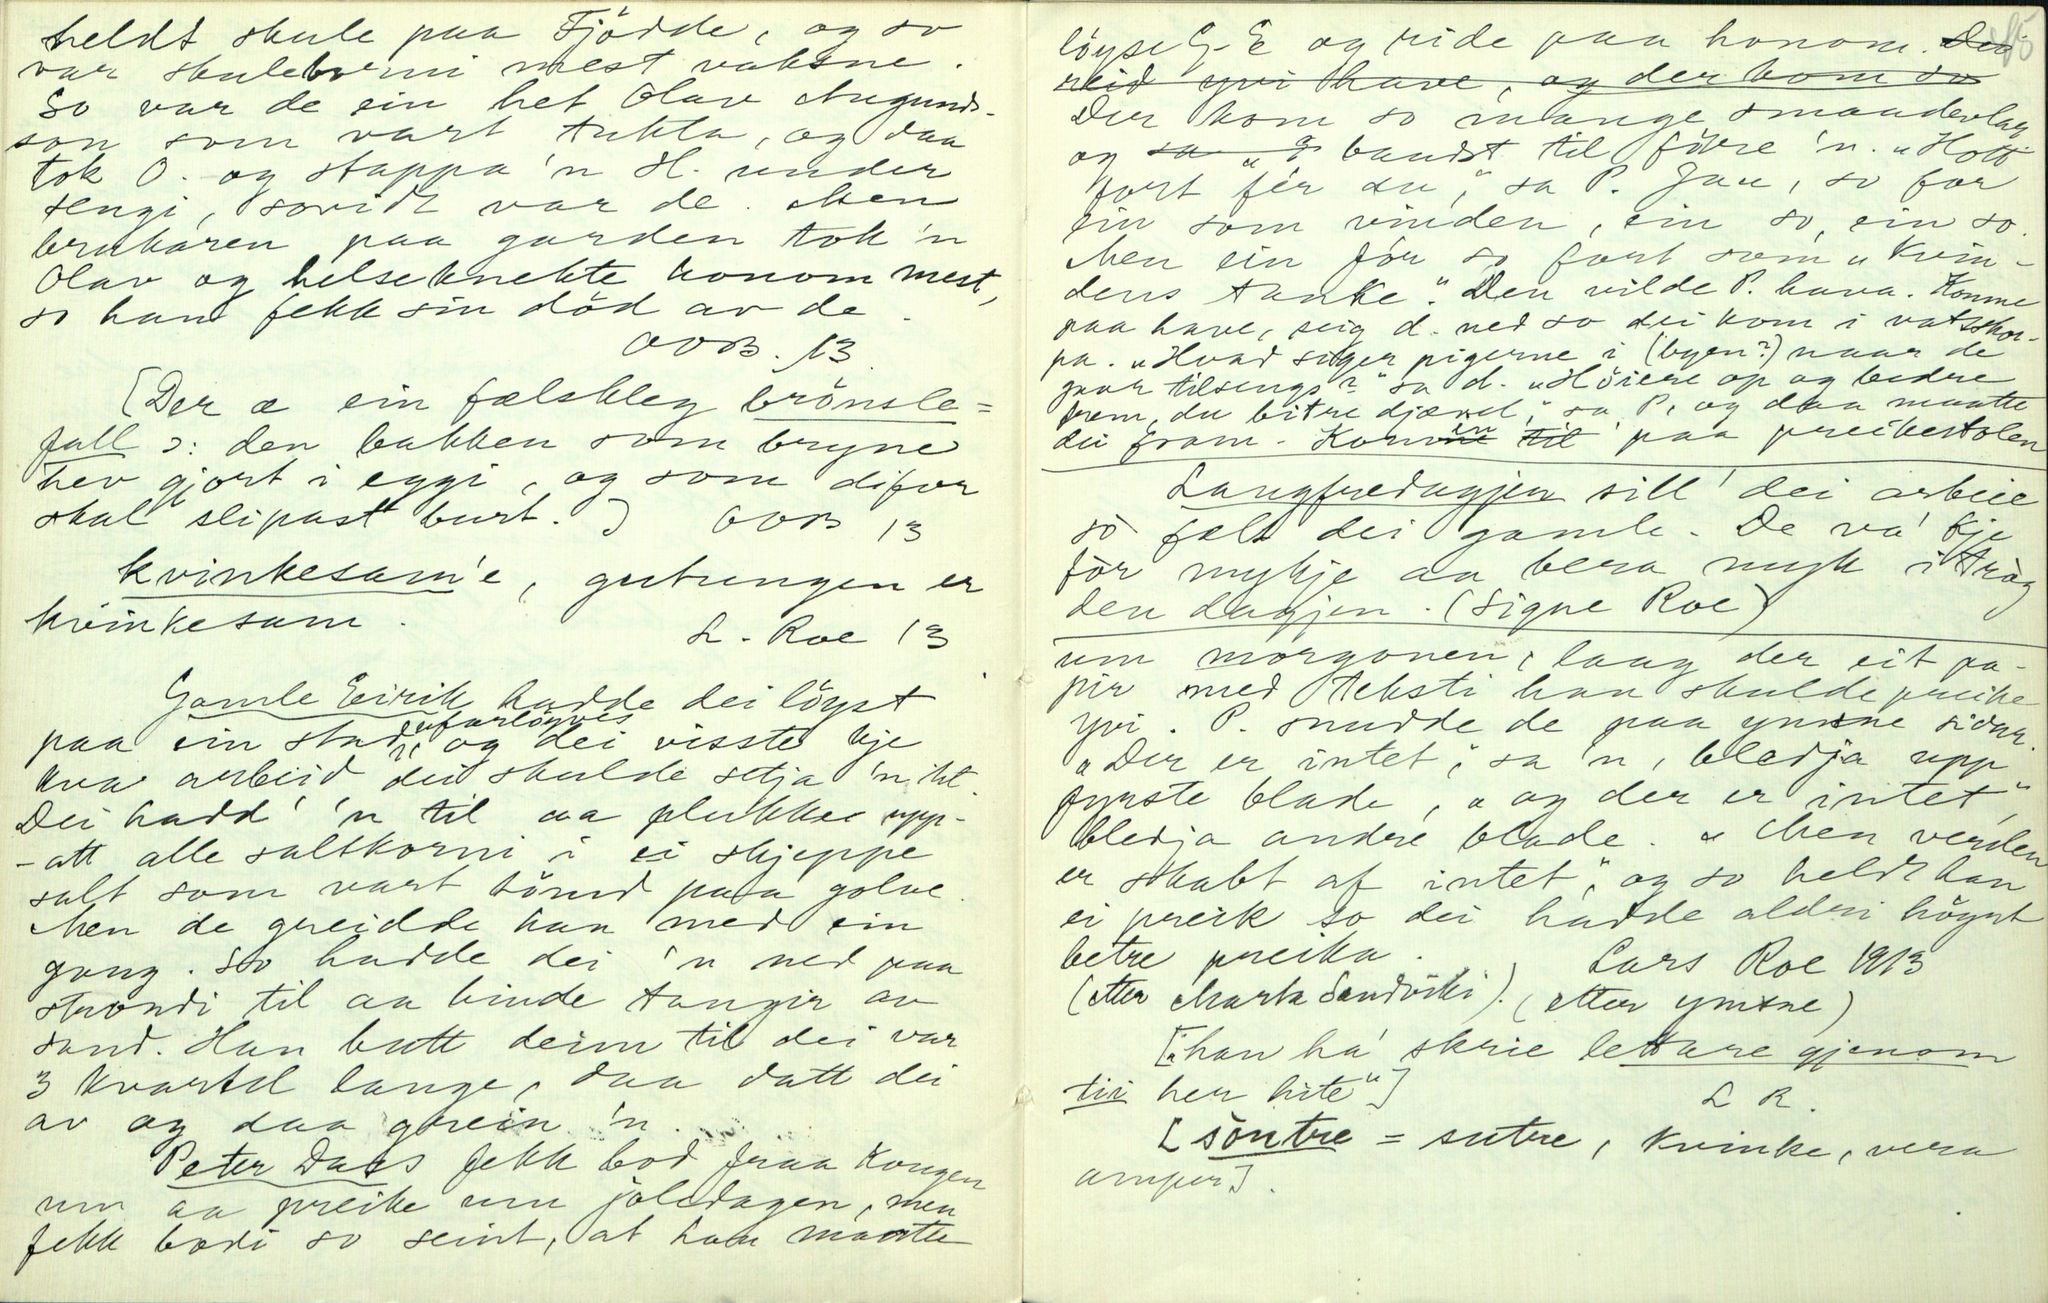 heldt skule paa Fjödde, og so
var skuleborni mest vaksne.
So var de ein het Olav Augunds-
son som vart tukta, og daa
tok O. og stappa 'n H. under
sengi, sovidt var de. Men
brukaren paa garden tok 'n
Olav og helseknekte honom mest,
so han fekk sin död av de.
OOB. 13
[Der æ ein fælsleg brönsle=
fall ɔ: den bakken som bryne
hev gjort i eggi, og som difor
skal slipast burt.] OOB 13
kvinkesam'e, gutungen er
kvinkesam.
L. Roe 13
Gamle Eirik hadde dei löyst
paa ein stad i "farlöyves"
og dei visste kje
kva arbeid dei skulde setja 'n iht.
Dei hadd' 'n til aa plukke upp-
-att alle saltkorni i ei skjeppe
salt som vart tömd paa golve.
Men de greidde han med ein
gong. So hadde dei 'n ned paa
strondi til aa binde taugir av
sand. Han batt deim til dei var
3 kvartel lange, daa datt dei
av og daa grein 'n.
Peter Dass fekk bod fraa Kongen
um aa preike um joledagen, men
fekk bodi so seint, at han maatte
löyse G-E og ride paa honom. Dei
reid yvi have, og der kom so
Der kom so mange smaadevlar
og sa "d baudst til före 'n. "Hott
fort fér du," sa P. Jau, so for
ein som vinden, ein so, ein so.
Men ein fór so fort som "Kvin-
dens tanke". Den vilde P. hava. Komne
paa have, seig d. ned so dei kom i vatsskor-
pa. "Hvad siger pigerne i (byen?) naar de
gaar tilsengs?" sa d. "Höiere op og bedre
frem, du bitre djævel," sa P, og daa maatte
dei fram. Komin til paa preikestolen
Langfredagjen sill' dei arbeie
so fælt dei gamle. De va' kje
för mykje aa bera myk i trög
den dagjen. (Signe Roe)
um morgonen, laag der eit pa-
pir med teksti han skulde preike
yvi. P. snudde de paa ymsne sidur.
"Der er intet," sa 'n, bledja upp
fyrste blade, "og der er intet"
bledja andre blade. "Men verden
er skabt af intet," og so heldt han
ei preik so dei hadde aldri höyrt
betre preika. Lars Roe 1913
(etter Marta Sandviki). (etter ymsne)
["han há' skrie lettare gjenom
tii her hite"] L R.
[söntre = sutre, kvinke, vera
amper].